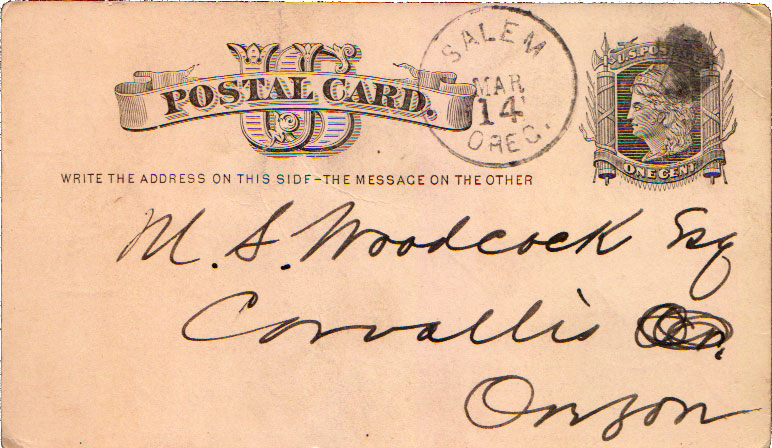 US
POSTAL CARD.
SALEM
MAR
14
OREG.
U.S. POSTAGE
ONE CENT
WRITE THE ADDRESS ON THIS SIDE–THE MESSAGE ON THE OTHER
M. S. Woodcock Esq
Corvallis
Oregon